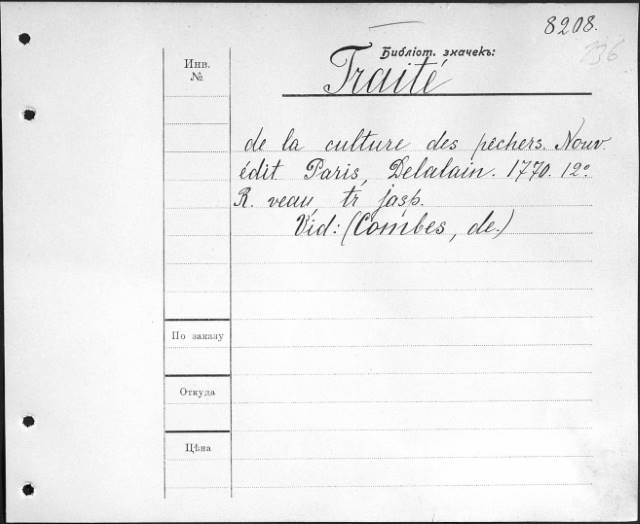 8208.
236
Библіот. значекъ:
Инв.
№
Traité
de la culture des pêchers. Nouv.
édit Paris, Delalain. 1770. 12º
R. veau, tr jasp.
Vid: (Combes, de.)
По заказу
Откуда
Цѣна